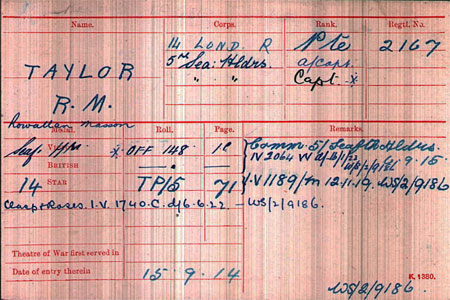 Name. Corps. Rank. Regtl. No.
14 LOND. R Pte 2167
TAYLOR
5th Sea: Hldrs. a/capt.
" " " Capt. x
R. M.
Rowallan
Medal. Roll. Page. Remarks.
V x OFF 148. Comm. 5/ Seaforth Hldrs.
BRITISH — " — 9.15
14 STAR TP/5 71 I.V 1189/m 12.11.19. WS/2/9186
Clasp & Roses. I.V. 1740. C. d/6.6.22. — WS/2/9186.
Theatre of War first served in
Date of entry therein 15.9.14
K. 1380.
WS/2/9186.